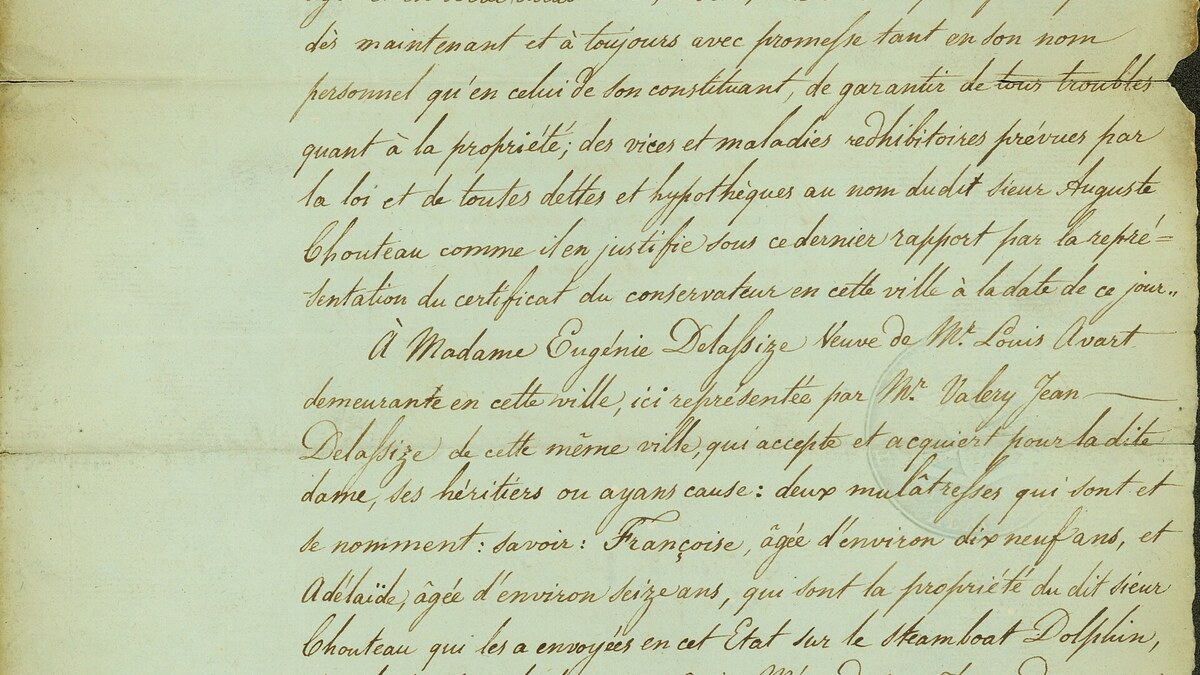 dès maintenant et à toujours avec promesse tant en son nom
personnel qu'en celui de son constituant, de garantir de tous troubles
quant à la propriété; des vices et maladies redhibitoires prévues par
la loi et de toutes dettes et hypothèques au nom dudit sieur Auguste
Chouteau comme il en justifie sous ce dernier rapport par la repré=
sentation du certificat du conservateur en cette ville à la date de ce jour..
À Madame Eugénie Delassize Veuve de Mr. Louis Avart
demeurante en cette ville, ici representée par Mr. Valery Jean
Delassize de cette même ville, qui accepte et acquiert pour la dite
dame, ses héritiers ou ayans cause: deux mulâtresses qui sont et
se nomment: savoir: Françoise, âgée d'environ dix neuf ans, et
Adélaïde, âgée d'environ seize ans, qui sont la propriété du dit sieur
Chouteau qui les a envoyées en cet Etat sur le steamboat Dolphin,